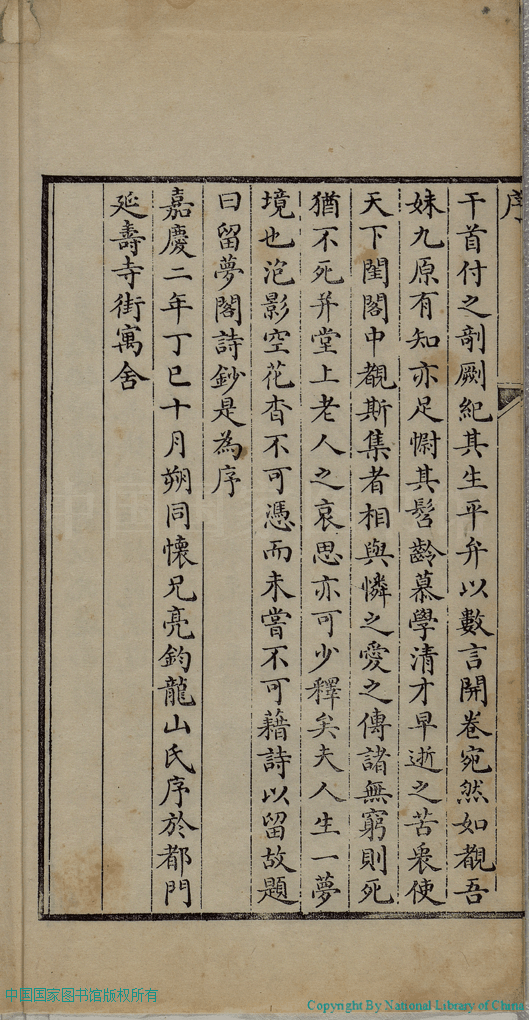 序
干首付之剞劂紀其生平弁以數言開卷宛然如覩吾
妹九原有知亦足慰其髫齡慕學清才早逝之苦衷使
天下閨閣中覩斯集者相與憐之愛之傳諸無窮則死
猶不死并堂上老人之哀思亦可少釋矣夫人生一夢
境也泡影空花杳不可憑而未嘗不可藉詩以留故題
曰留夢閣詩鈔是為序
嘉慶二年丁巳十月朔同懷兄亮鈞龍山氏序於都門
延壽寺街寓舍
中国国家图书馆版权所有
Copyright By National Library of China